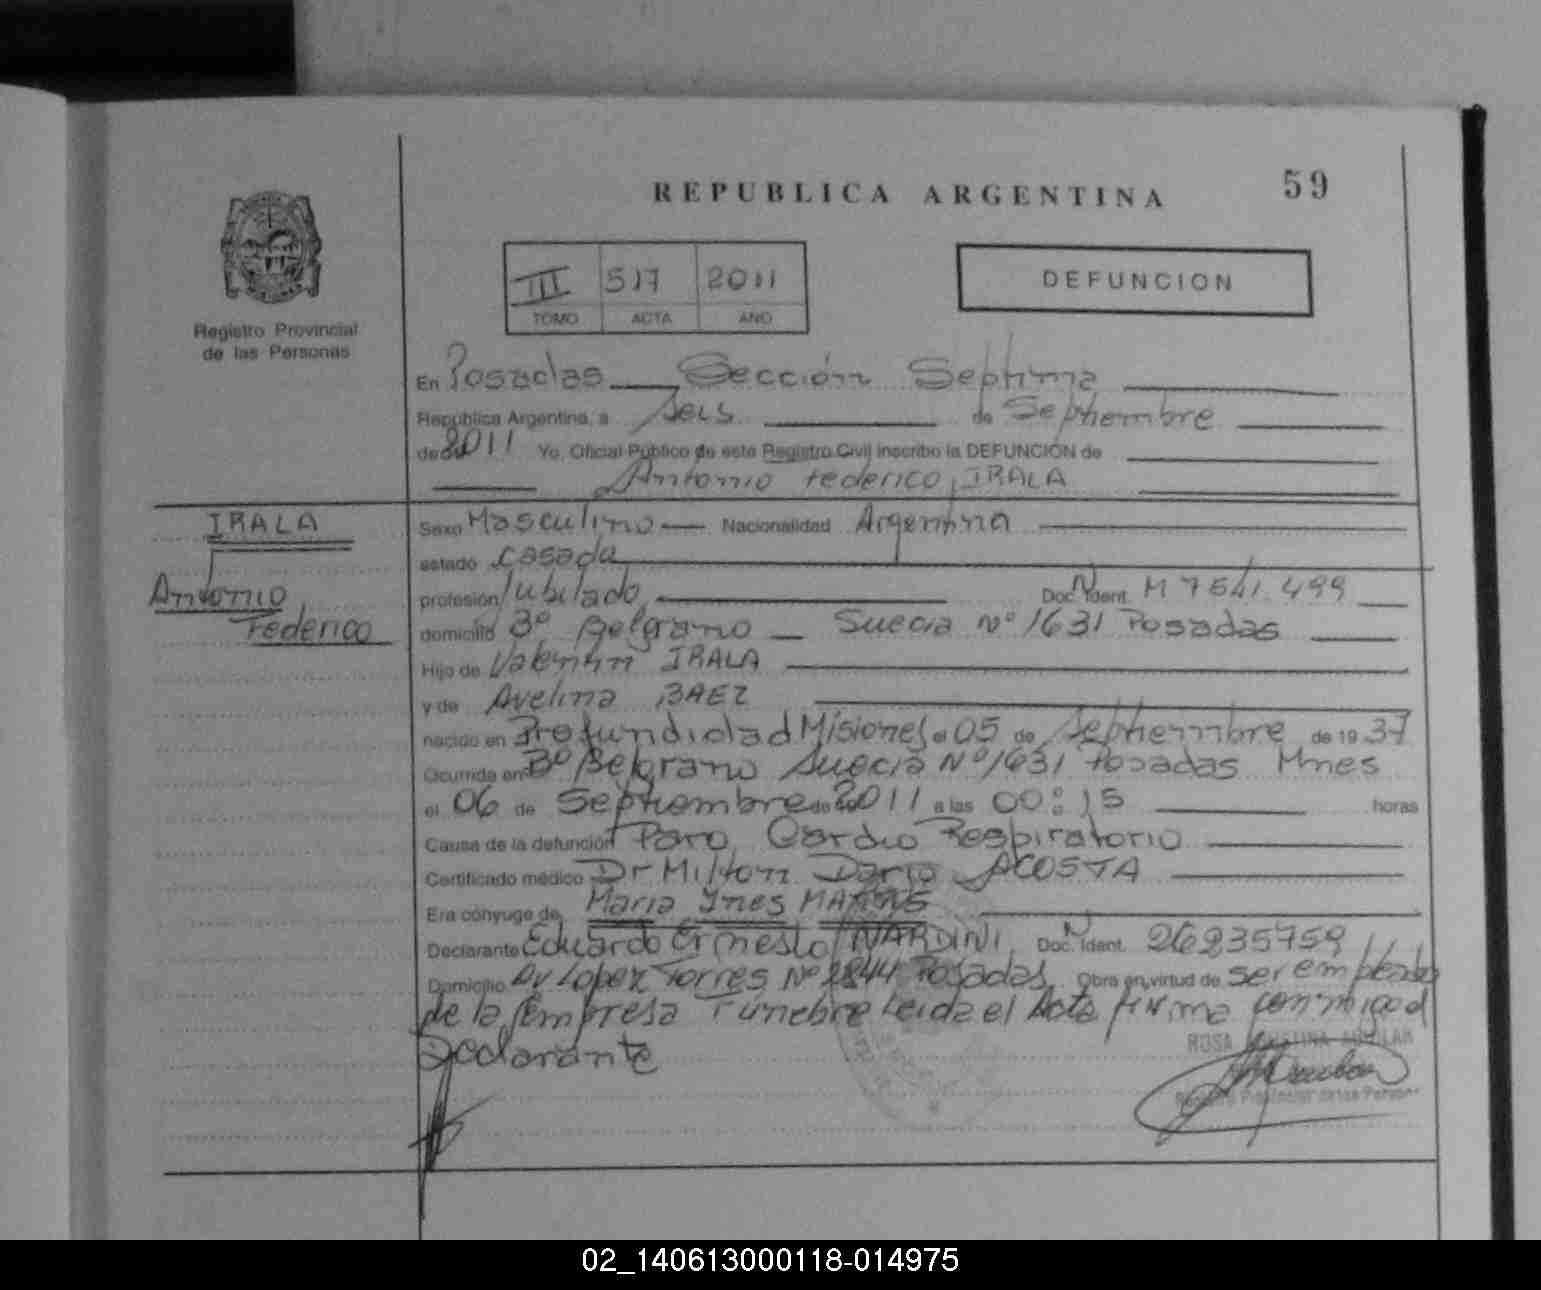 59
REPUBLICA ARGENTINA
III 517 2011
TOMO ACTA AÑO
DEFUNCION
Registro Provincial
de las Personas
En Posadas Sección Septima
República Argentina, a Seis de Septiembre
de 2011 Yo, Oficial Público de este Registro Civil inscribo la DEFUNCIÓN de
Antonio Federico IRALA
IRALA
Antonio
Federico
Sexo Masculino Nacionalidad Argentina
estado casado
profesión Jubilado Doc. N Ident. M 7541.499
domicilio Bº Belgrano Suecia Nº 1631 Posadas
Hijo de Valentin IRALA
y de Avelina BAEZ
nacido en Profundidad Misiones el 05 de Septiembre de 19 37
Ocurrida en Bº Belgrano Suecia Nº 1631 Posadas Mnes
el 06 de Septiembre de 2011 a las 00:15 horas
Causa de la defunción Paro Cardio Respiratorio
Certificado médico Dr Milton Dario ACOSTA
Era cónyuge de Maria Ynes
Declarante Eduardo Ernesto NARDINI Doc. N Ident. 26235759
Domicilio Av Lopez Torres Nº 2844 Posadas Obra en virtud de ser empleado
de la Empresa Fúnebre Leida el Acta firma conmigo el
Declarante
ROSA CRISTINA AGUILAR
Registro Provincial de las Person
02_140613000118-014975